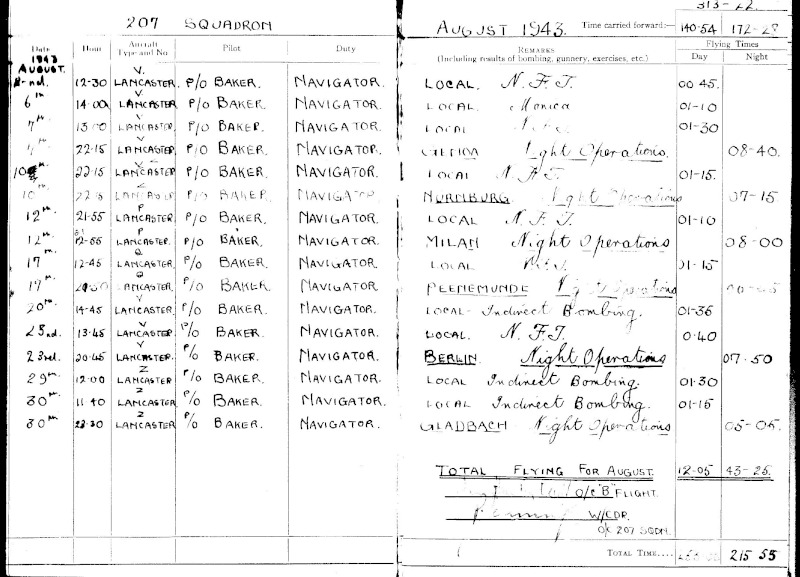 207 SQUADRON
AUGUST 1943. Time carried forward:— 313-22 140-54 172-28
Date Hour Aircraft Type and No. Pilot Duty REMARKS (Including results of bombing, gunnery, exercises, etc.) Flying Times Day Night
1943 AUGUST.
2nd. 12-30 V. LANCASTER. P/O BAKER. NAVIGATOR. LOCAL. N.F.T. 00 45.
6th 14-00 V LANCASTER. P/O BAKER. NAVIGATOR. LOCAL. Monica 01-10
7th 13 00 V LANCASTER. P/O BAKER. NAVIGATOR. LOCAL 01-30
22-15 V LANCASTER. P/O BAKER. NAVIGATOR. GENOA Night Operations. 08-40.
10th 22-15 LANCASTER. P/O BAKER. NAVIGATOR. LOCAL N.F.T. 01-15.
10th LANCASTER P/O BAKER. NAVIGATOR. NURMBURG. Night Operations 07-15
12th 21-55 P LANCASTER. P/O BAKER. NAVIGATOR. LOCAL N.F.T. 01-10
12th P LANCASTER. P/O BAKER. NAVIGATOR. MILAN Night Operations 08-00
17th 12-45 Q LANCASTER. P/O BAKER. NAVIGATOR. LOCAL 01-15
Q LANCASTER. P/O BAKER. NAVIGATOR. PEENEMUNDE Night Operations
20th 14-45 V LANCASTER. P/O BAKER. NAVIGATOR. LOCAL- Indirect Bombing. 01-35
23nd. 13-45 V LANCASTER. P/O BAKER. NAVIGATOR. LOCAL. N.F.T. 0.40
23rd. 20.45 V LANCASTER. P/O BAKER. NAVIGATOR. BERLIN. Night Operations 07.50
29th 12-00 Z LANCASTER P/O BAKER. NAVIGATOR. LOCAL Indirect Bombing. 01-30
30th 11.40 Z LANCASTER P/O BAKER. NAVIGATOR. LOCAL Indirect Bombing. 01-15
30th 23.30 Z LANCASTER P/O BAKER. NAVIGATOR. GLADBACH Night Operations 05-05.
TOTAL FLYING FOR AUGUST. 12-05 43-25.
O/C "B" FLIGHT.
W/CDR.
O/C 207 SQDN.
TOTAL TIME.... 215 55